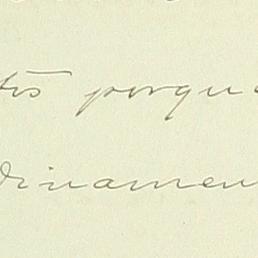 tōs porqu
dinamen